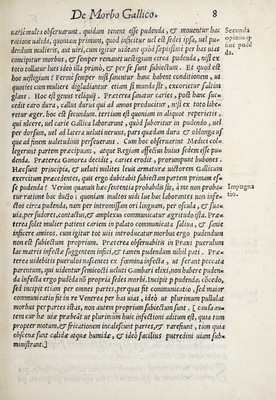 De Morbo Gallico. 8
uarii multi obseruarunt. quidam tenent esse pudenda, & mouentur hac
ratione ualida, quoniam primum, quod inficitur uel est sedes ipsa, uel pu-
dendum mulieris, aut uiri, cum igitur uideāt quòd sepissimè per has uias
concipitur morbus, & semper remanet uestigium circa pudenda, nisi ex
toto tollatur lues ideò illa primò, & per se sunt subiectum. Et quale est
hoc uestigium? Fermè semper nisi sanentur hanc habent debilitatem, ut
quoties cum muliere digladiantur etiam si munda sit, excorietur saltim
glans. Hoc est genus reliquij. Præterea sanatur caries, post hanc suc-
cedit caro dura, callus durus qui ad annos producitur, nisi ex toto libe-
retur æger. hoc est secundum. tertium est quoniam in aliquot repetitis,
qui ulcere, uel carie Gallica laborarunt, quid laboritur in pudendo, uel
per dorsum, uel ad latera ueluti neruus, pars quædam dura & oblonga us
que ad finem ualetudinis perseuerans. Cum hoc obseruarint Medici col-
legerunt partem præcipuam, atque Regiam affectus huius sedem esse pu-
denda. Præterea Gonorea decidit, caries erodit, prorumpunt bubones.
Hæc sunt principia, & ueluti milites leuis armaturæ uultorem Gallicum
exercitum præcedentes, quis ergo dubitabit subiectum partem primam es-
se pudenda? Verùm quamuis hæc sententia probabilis sit, à me non proba-
tur ratione hac ducto: quoniam multos uidi lue hac laborantes non infe-
ctos circa pudenda, nam per intromissam ore linguam, per oscula, & sua-
uia, per sudores, contactus, & amplexus communicatur ægritudo ista. Præ-
terea solet mulier patiens cariem in palato communicata saliua, & sanie
inficere amicos. cum igitur tot uiis introducatur morbus ergo pudendum
non est subiectum proprium. Præterea obseruabitis in Praxi puerulum
lac matris infectæ suggentem infici, & tamen pudendum nihil pati. Præ-
terea uidebitis puerulos nascentes ex fœmina infecta, ut ferant peccata
parentum, qui uidentur semicocti ueluti Gambari elixi, non habere puden-
da infecta ergo pudēda nō propria sedes morbi. Incipit p pudenda: cōcedo,
sed incipit etiam per omnes partes, per quas fit communicatio, sed maior
communicatio fit in re Venerea per has uias, ideò ut plurimum pullulat
morbus per partes istas, non autem proprium subiectum sunt. [ causa au-
tem cur hæ uiæ præbeāt ut plurimùm huic infectioni aditum est, quia tum
propter motum, & fricationem incalescunt partes, & rarefiunt, tum quia
obscœna sunt calidæ atque humidæ, & ideò facilius putredini uiam sub-
ministrant.]
Secunda
opinio q
sint pudē
da.
Impugna
tio.